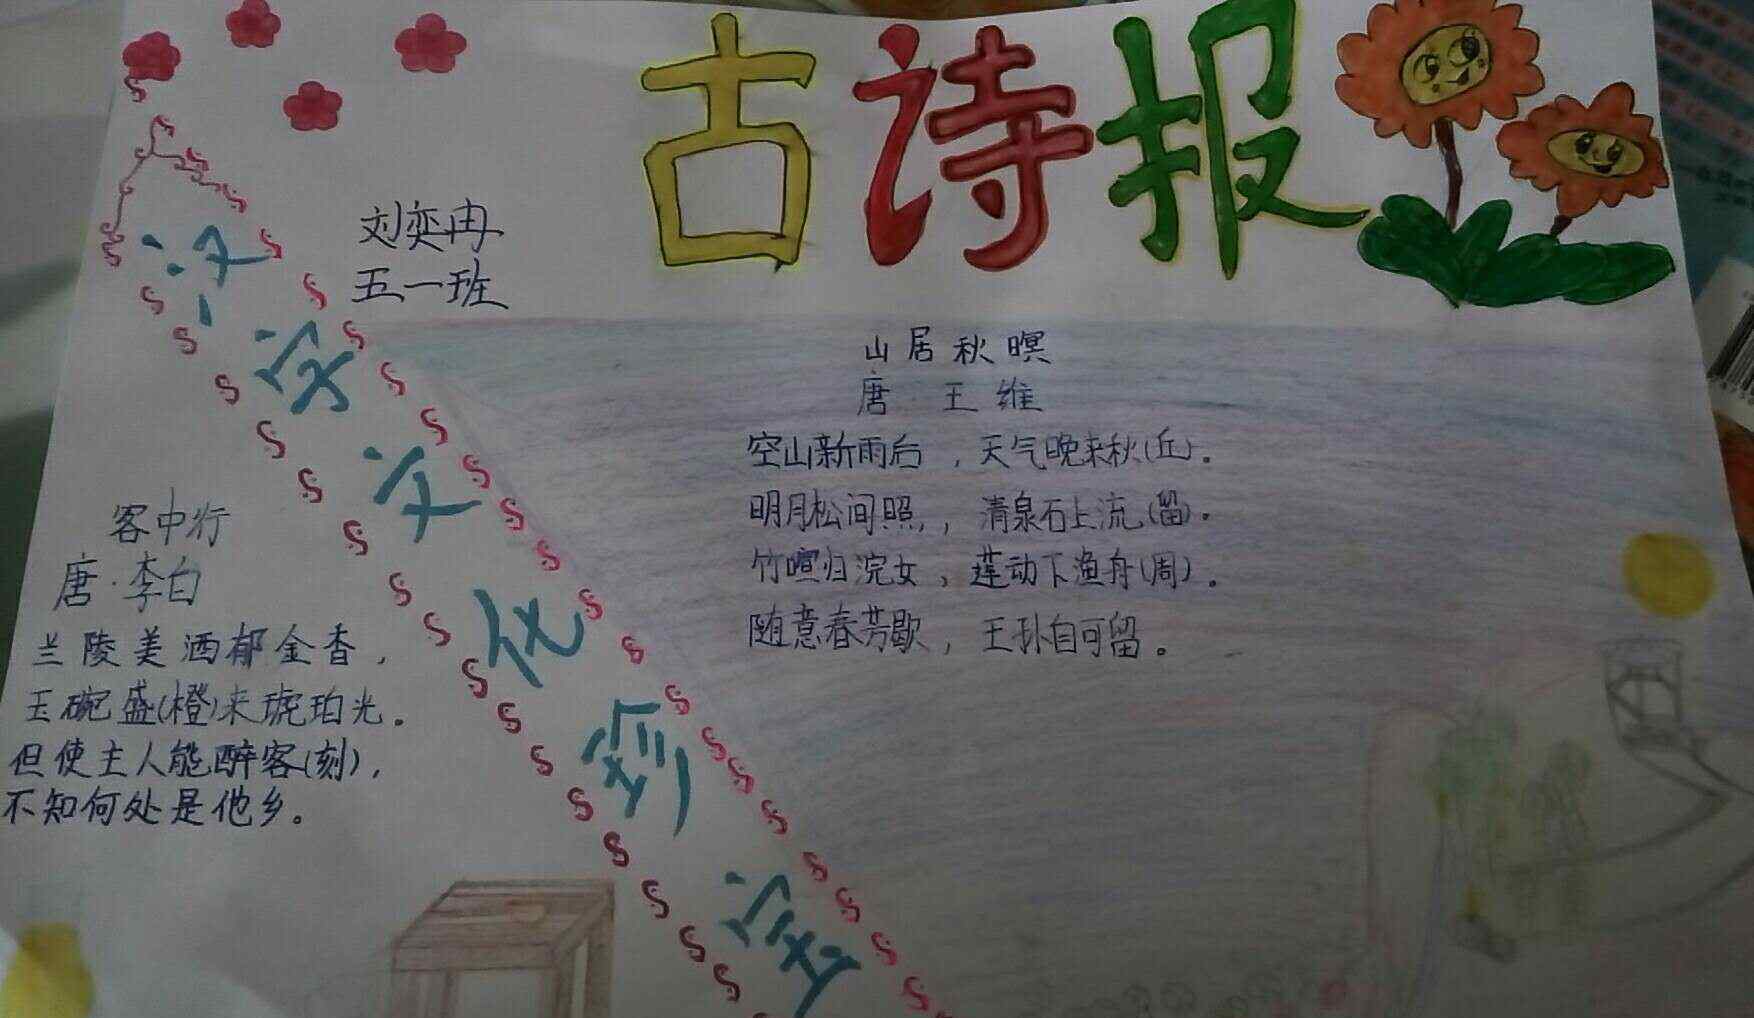 古诗报
刘奕冉
五一班
汉字文化珍宝
山居秋暝
唐 王维
空山新雨后，天气晚来秋(丘)。
明月松间照，清泉石上流(留)。
竹喧归浣女，莲动下渔舟(周)。
随意春芳歇，王孙自可留。
客中行
唐·李白
兰陵美酒郁金香，
玉碗盛(橙)来琥珀光。
但使主人能醉客(刻)，
不知何处是他乡。